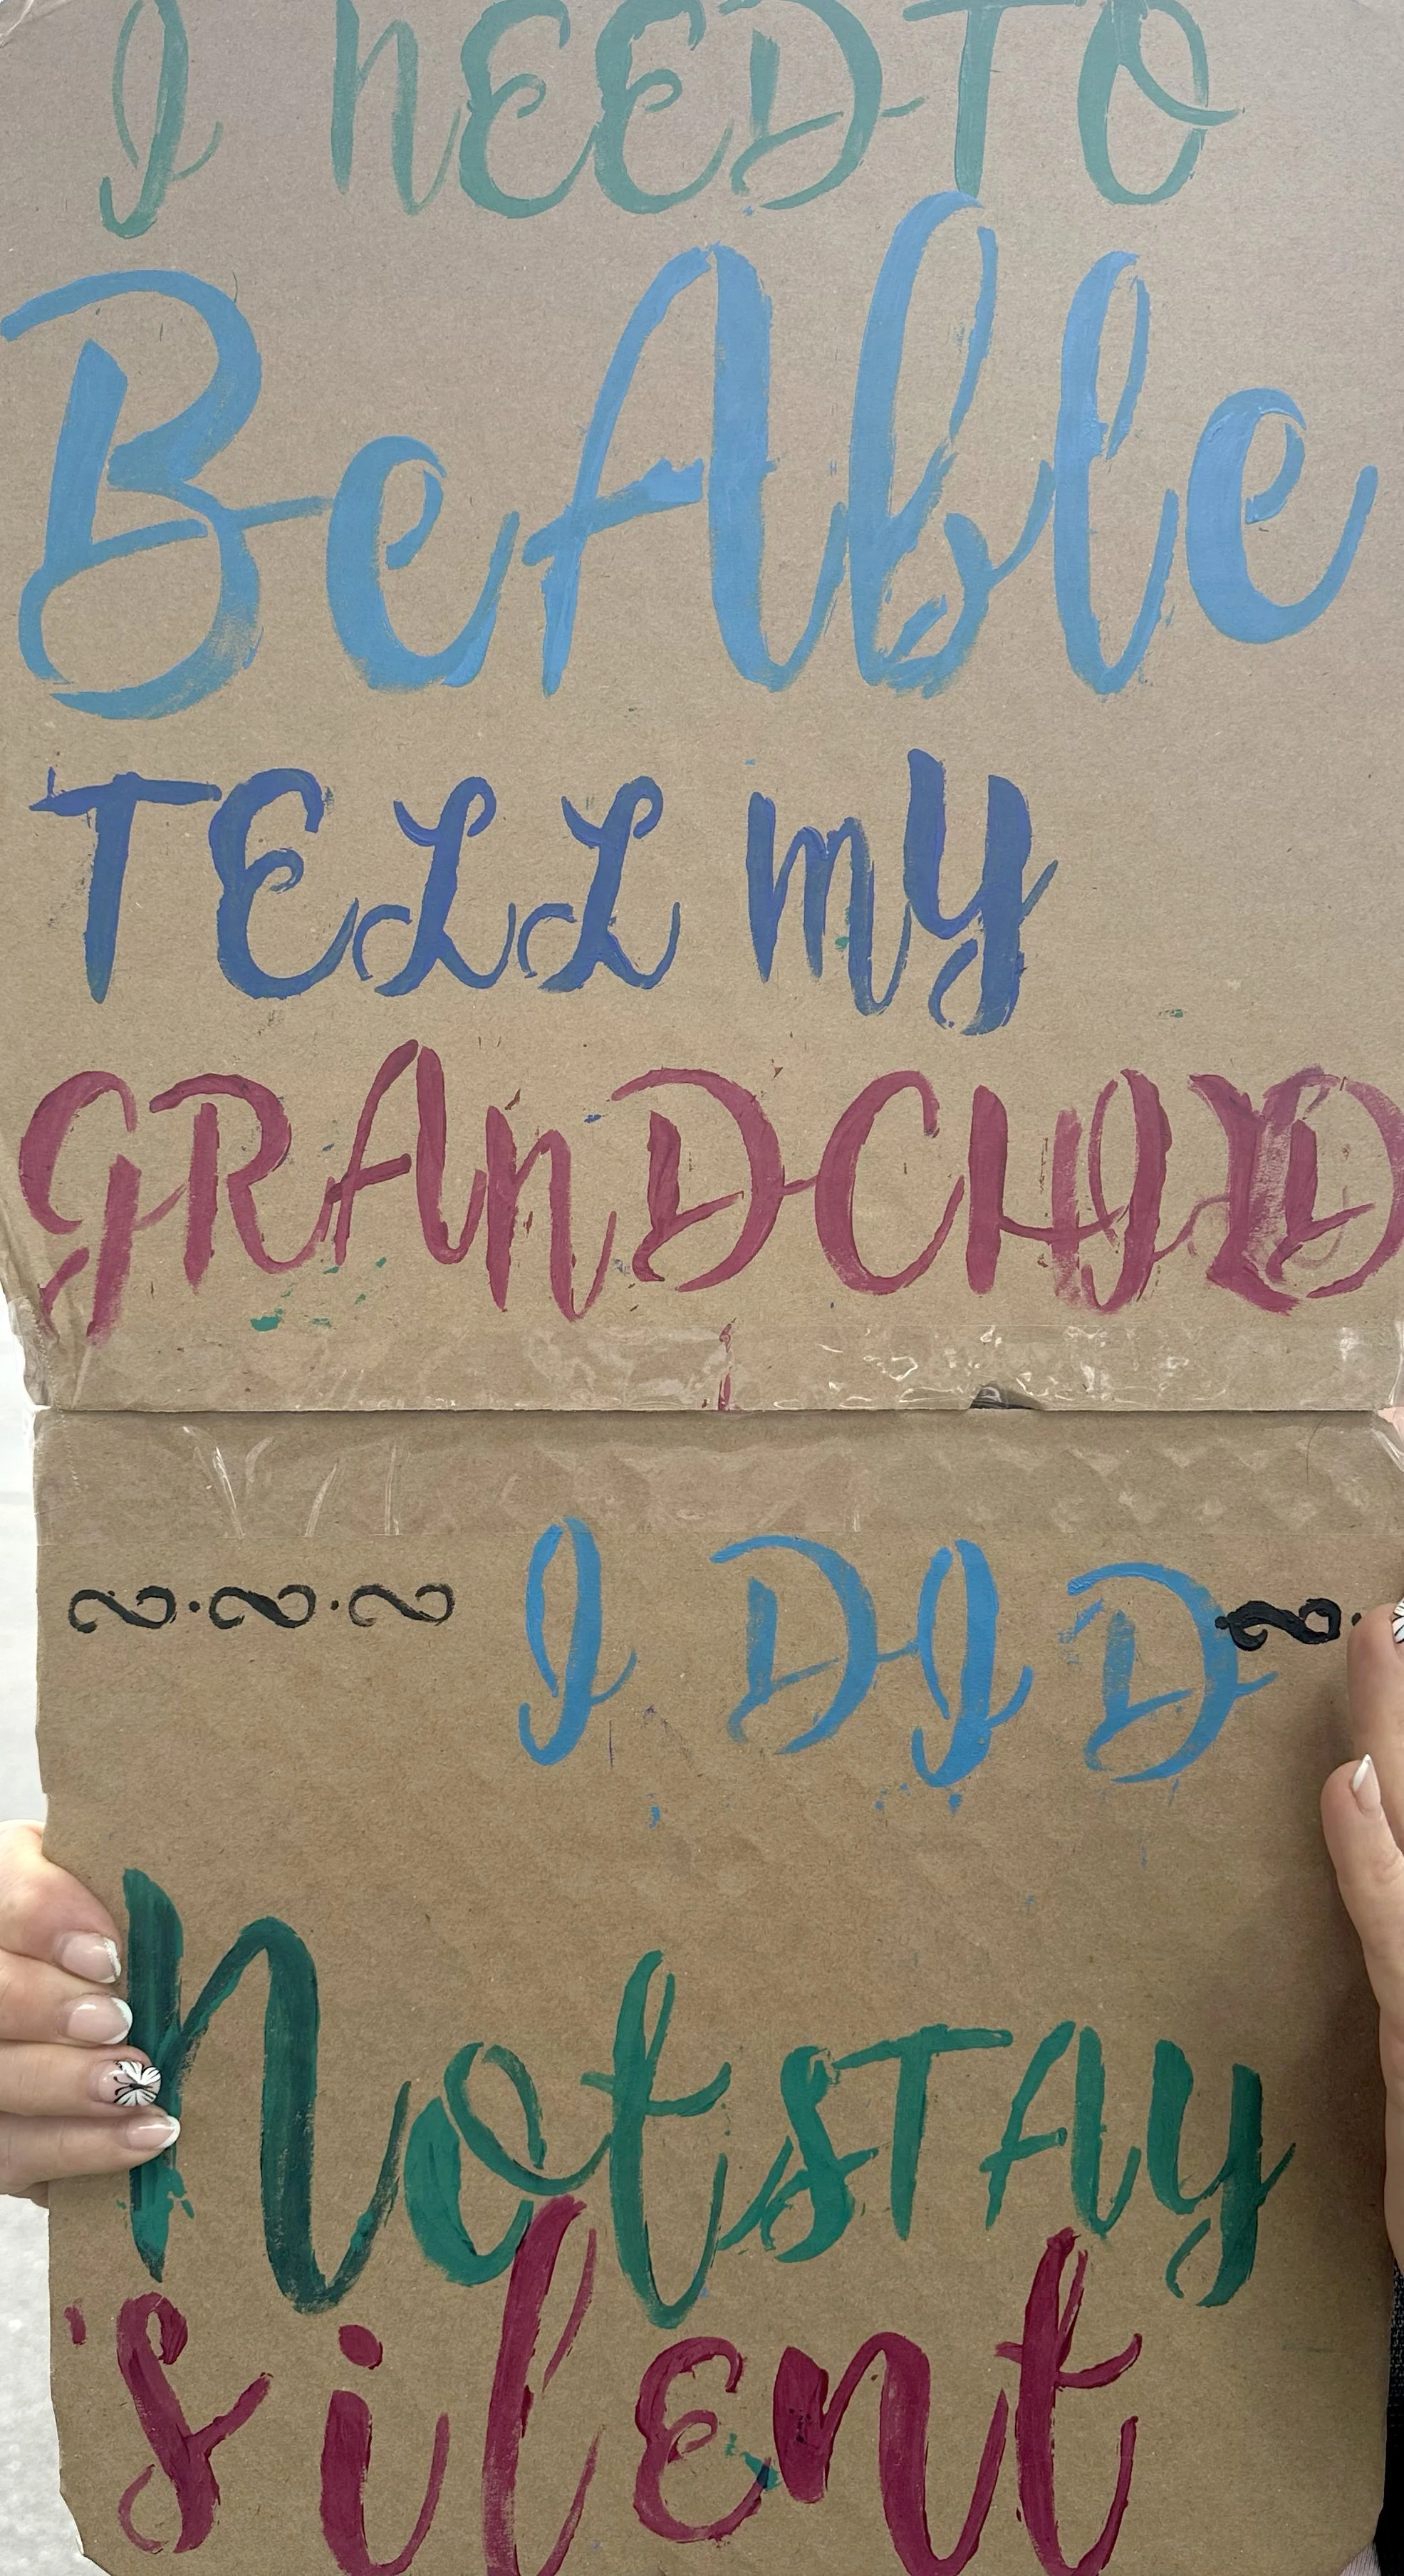 I NEED TO
Be Able
TELL MY
GRANDCHILD
I DID
Not STAY
silent